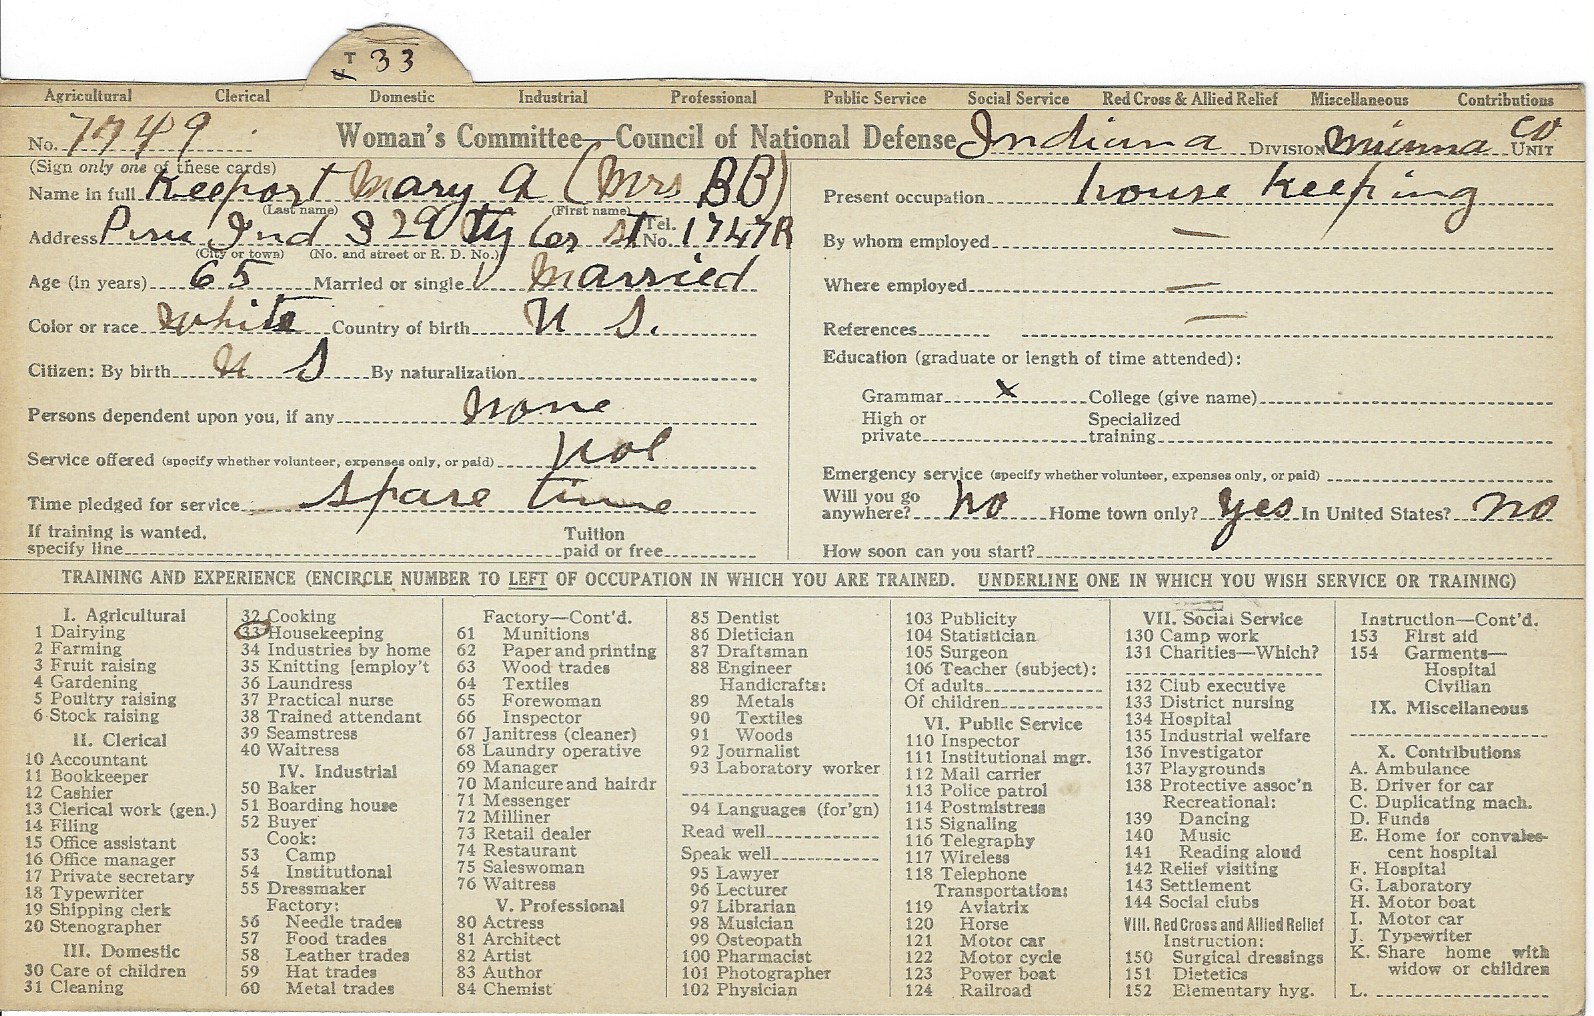 T 33
Agricultural Clerical Domestic Industrial Professional Public Service Social Service Red Cross & Allied Relief Miscellaneous Contributions
No. 7749 Woman's Committee—Council of National Defense Indiana DIVISION CO UNIT
(Sign only one of these cards)
Name in full Keeport Mary A (Mrs BB)
(Last name) (First name)
Address Peru Ind 329 st Tel. No. 1747R
(City or town) (No. and street or R. D. No.)
Age (in years) 65 Married or single Married
Color or race White Country of birth U S.
Citizen: By birth U S By naturalization
Persons dependent upon you, if any none
Service offered (specify whether volunteer, expenses only, or paid) Vol
Time pledged for service spare time
If training is wanted, specify line Tuition paid or free
Present occupation house keeping
By whom employed —
Where employed —
References —
Education (graduate or length of time attended):
Grammar x College (give name)
High or private Specialized training
Emergency service (specify whether volunteer, expenses only, or paid)
Will you go anywhere? no Home town only? yes In United States? no
How soon can you start?
TRAINING AND EXPERIENCE (ENCIRCLE NUMBER TO LEFT OF OCCUPATION IN WHICH YOU ARE TRAINED. UNDERLINE ONE IN WHICH YOU WISH SERVICE OR TRAINING)
I. Agricultural
1 Dairying
2 Farming
3 Fruit raising
4 Gardening
5 Poultry raising
6 Stock raising
II. Clerical
10 Accountant
11 Bookkeeper
12 Cashier
13 Clerical work (gen.)
14 Filing
15 Office assistant
16 Office manager
17 Private secretary
18 Typewriter
19 Shipping clerk
20 Stenographer
III. Domestic
30 Care of children
31 Cleaning
32 Cooking
33 Housekeeping
34 Industries by home
35 Knitting [employ't
36 Laundress
37 Practical nurse
38 Trained attendant
39 Seamstress
40 Waitress
IV. Industrial
50 Baker
51 Boarding house
52 Buyer
Cook:
53 Camp
54 Institutional
55 Dressmaker
Factory:
56 Needle trades
57 Food trades
58 Leather trades
59 Hat trades
60 Metal trades
Factory—Cont'd.
61 Munitions
62 Paper and printing
63 Wood trades
64 Textiles
65 Forewoman
66 Inspector
67 Janitress (cleaner)
68 Laundry operative
69 Manager
70 Manicure and hairdr
71 Messenger
72 Milliner
73 Retail dealer
74 Restaurant
75 Saleswoman
76 Waitress
V. Professional
80 Actress
81 Architect
82 Artist
83 Author
84 Chemist
85 Dentist
86 Dietician
87 Draftsman
88 Engineer
Handicrafts:
89 Metals
90 Textiles
91 Woods
92 Journalist
93 Laboratory worker
94 Languages (for'gn)
Read well
Speak well
95 Lawyer
96 Lecturer
97 Librarian
98 Musician
99 Osteopath
100 Pharmacist
101 Photographer
102 Physician
103 Publicity
104 Statistician
105 Surgeon
106 Teacher (subject):
Of adults
Of children
VI. Public Service
110 Inspector
111 Institutional mgr.
112 Mail carrier
113 Police patrol
114 Postmistress
115 Signaling
116 Telegraphy
117 Wireless
118 Telephone
Transportation:
119 Aviatrix
120 Horse
121 Motor car
122 Motor cycle
123 Power boat
124 Railroad
VII. Social Service
130 Camp work
131 Charities—Which?
132 Club executive
133 District nursing
134 Hospital
135 Industrial welfare
136 Investigator
137 Playgrounds
138 Protective assoc'n
Recreational:
139 Dancing
140 Music
141 Reading aloud
142 Relief visiting
143 Settlement
144 Social clubs
VIII. Red Cross and Allied Relief
Instruction:
150 Surgical dressings
151 Dietetics
152 Elementary hyg.
Instruction—Cont'd.
153 First aid
154 Garments—
Hospital
Civilian
IX. Miscellaneous
X. Contributions
A. Ambulance
B. Driver for car
C. Duplicating mach.
D. Funds
E. Home for convales-
cent hospital
F. Hospital
G. Laboratory
H. Motor boat
I. Motor car
J. Typewriter
K. Share home with
widow or children
L.